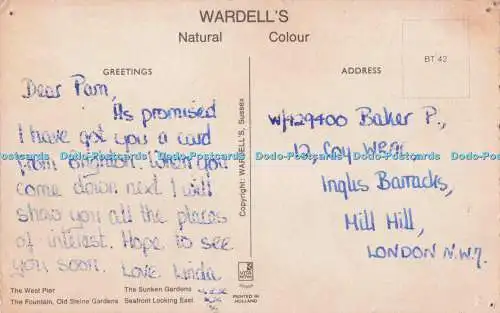 WARDELL'S
Natural Colour
BT 42
GREETINGS
ADDRESS
Dear Pam,
As promised
I have got you a card
from Brighton. When you
come down next I will
show you all the places
of interest. Hope to see
you soon. Love Linda
W/429400 Baker P.,
12, Coy W.R.A.C.
Inglis Barracks,
Mill Hill,
LONDON N.W.7.
Copyright: WARDELL'S, Sussex
Postcards Dodo-Postcards Dodo-Postcards Dodo-Postcards Dodo-Postcards Dodo-Postcards Dodo
The West Pier The Sunken Gardens
The Fountain, Old Steine Gardens Seafront Looking East
PRINTED IN
HOLLAND